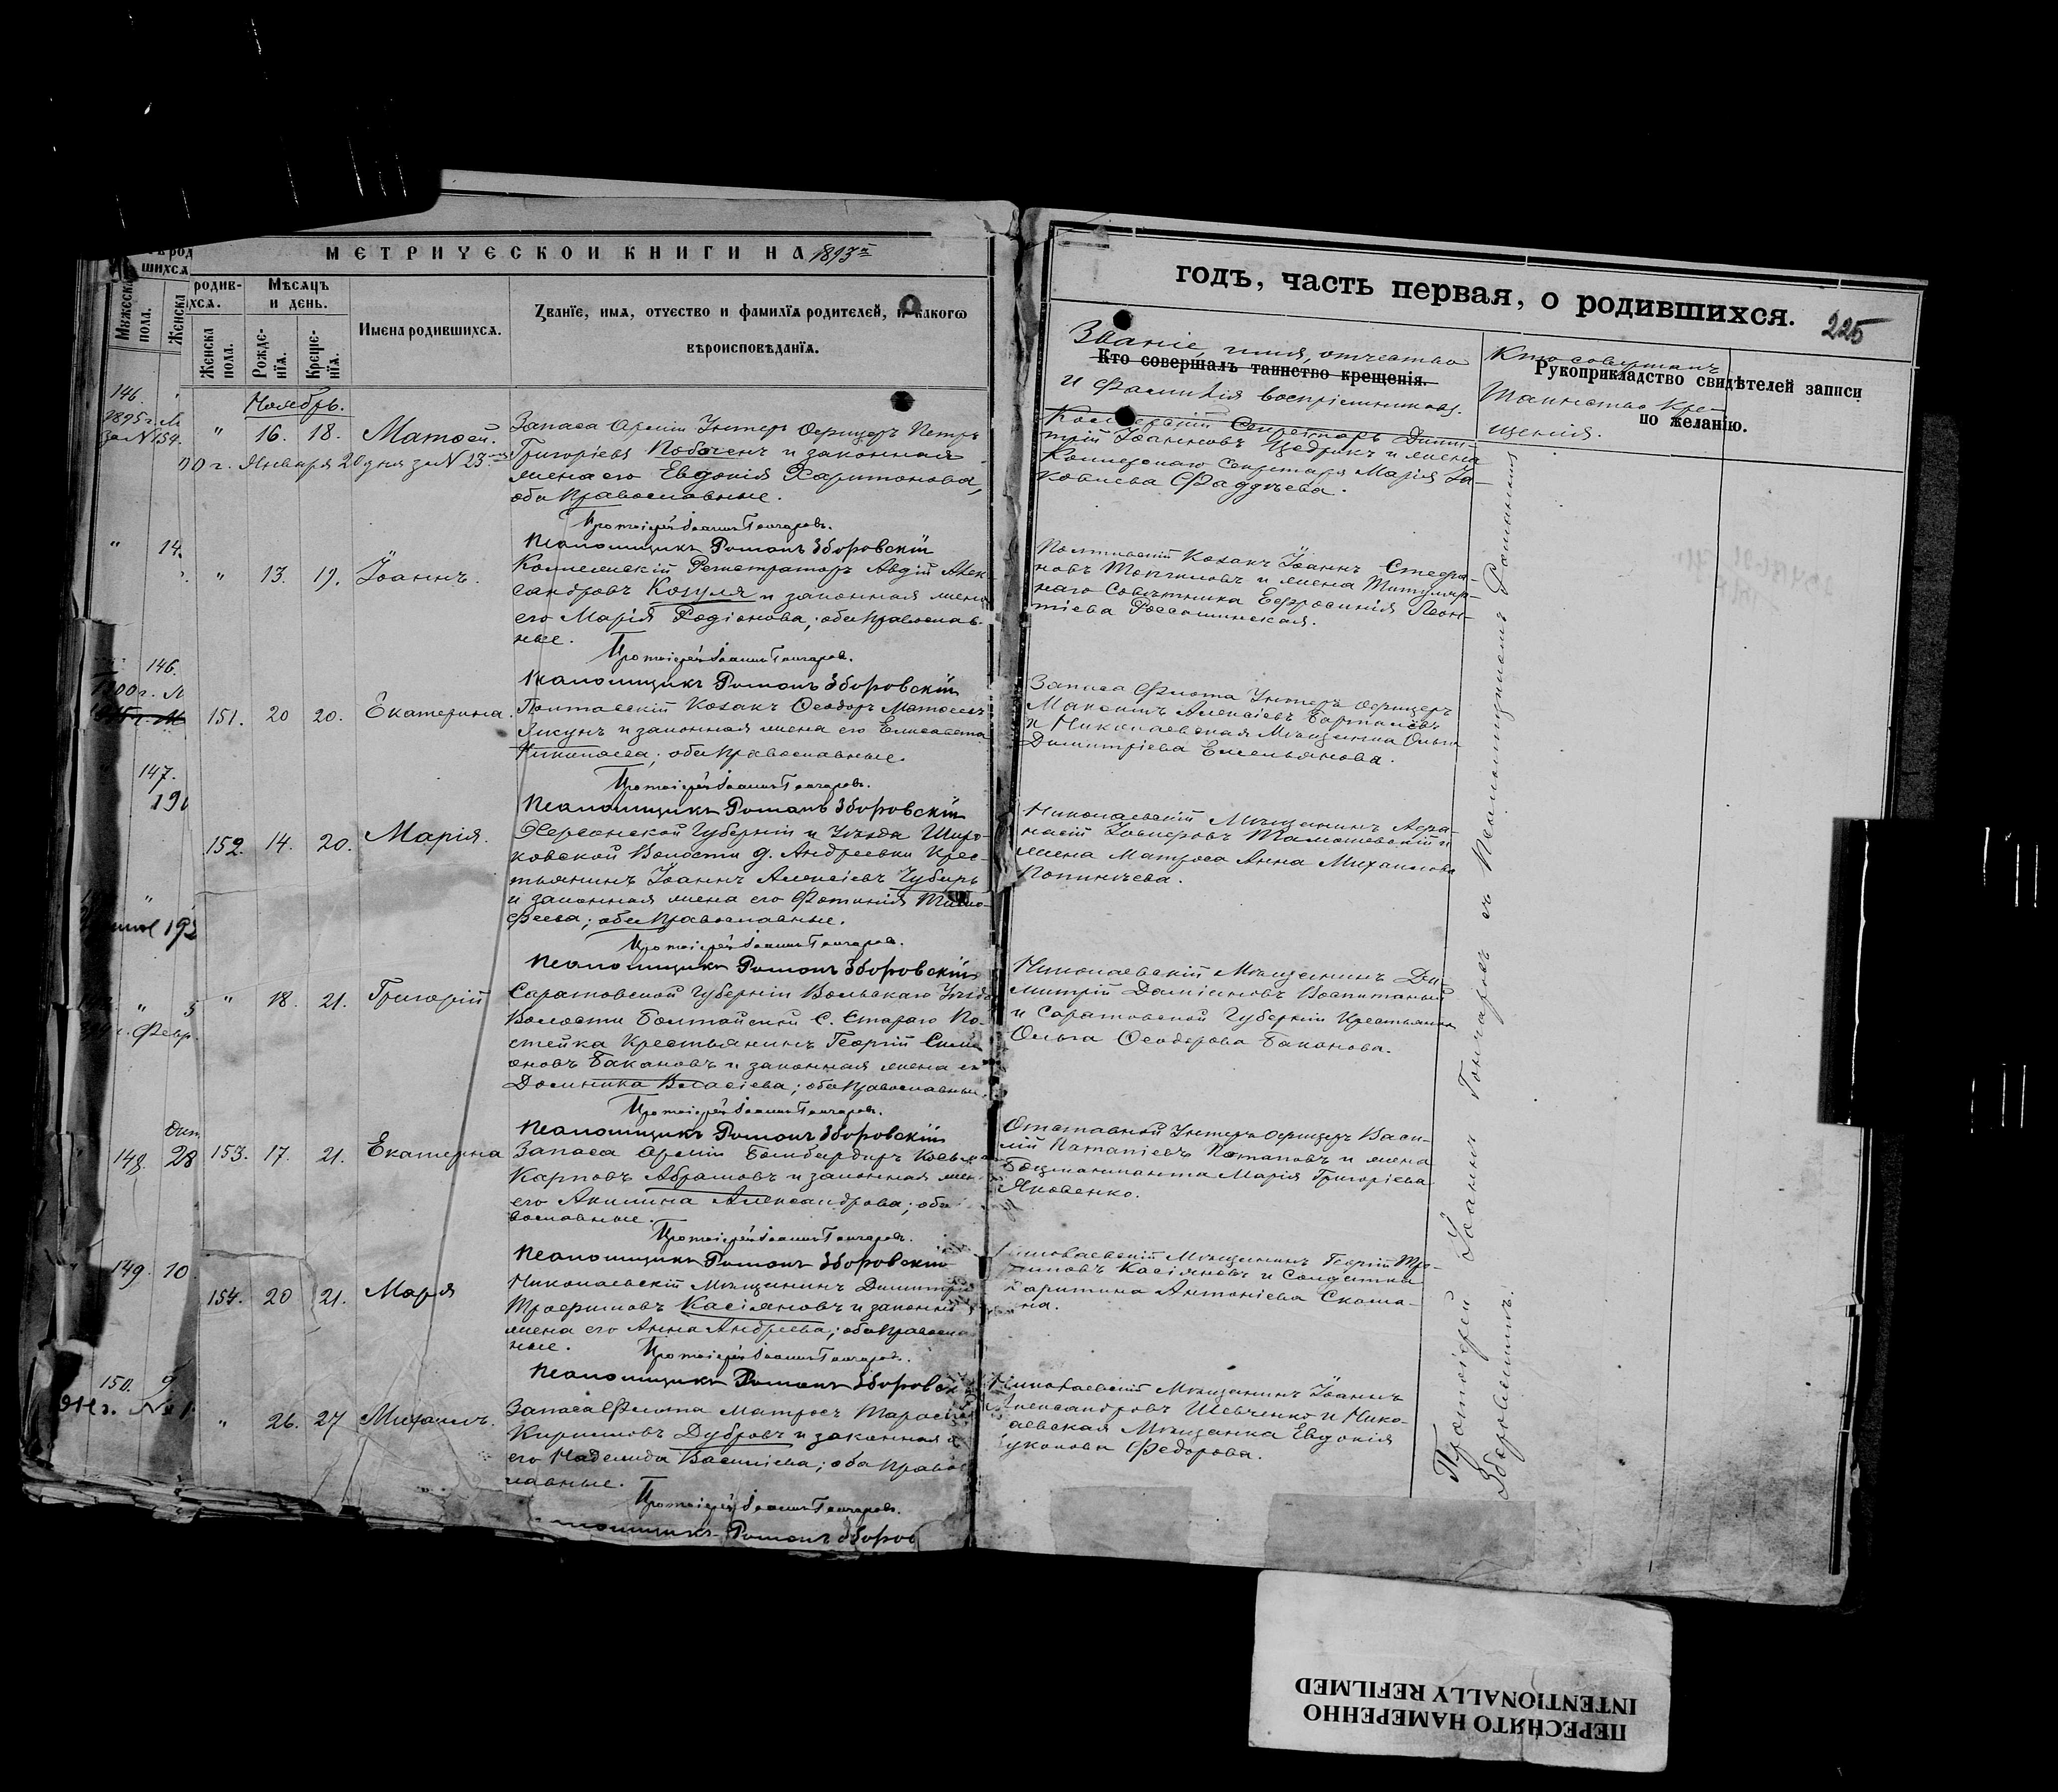 МЕТРИЧЕСКОЙ КНИГИ НА 1893
шихся
Мѣсяцъ
и день.
родив-
хся.
Мужеска
пола.
Женска
Женска
пола.
Рожде-
нія.
Креще-
нія.
Имена родившихся.
Званіе, имя, отчество и фамилія родителей, и какого
вѣроисповѣданія.
146.
1895 г. М
за № 154.
Ноябрь.
" 16. 18. Матѳей.
00 г. Января 20 дня за N 23
Запаса Арміи Унтеръ Офицеръ Петръ
Григорьевъ Побоченъ и законная
жена его Евдокія Харитонова,
оба Православные.
Протоіерей Іоаннъ Гончаровъ.
Псаломщикъ Романъ Зборовскій
" 14.
" 13. 19. Іоаннъ.
Коллежскій Регистраторъ Авдій Алек-
сандровъ Козуля и законная жена
его Марія Родіонова; оба Православ-
ные.
Протоіерей Іоаннъ Гончаровъ.
Псаломщикъ Романъ Зборовскій
146.
1900 г. М
151. 20 20. Екатерина.
Полтавскій Козакъ Ѳеодоръ Матѳеевъ
Ликунъ и законная жена его Елисавета
Николаева; оба Православные.
Протоіерей Іоаннъ Гончаровъ.
Псаломщикъ Романъ Зборовскій
147.
190
152. 14. 20. Марія.
Херсонской Губерніи и Уѣзда Широ-
ковской Волости д. Андреевки Крес-
тьянинъ Іоаннъ Алексіевъ Чубирь
и законная жена его Фотинія Тимо-
феева; оба Православные.
Протоіерей Іоаннъ Гончаровъ.
Псаломщикъ Романъ Зборовскій
192
" 5
г. Февр.
" 18. 21. Григорій
Саратовской Губерніи Вольскаго Уѣзда
Волости Болтайской С. Стараго По-
стейка Крестьянинъ Георгій Симе
оновъ Бакановъ и законная жена его
Домникія Власіева; оба Православные.
Протоіерей Іоаннъ Гончаровъ.
Псаломщикъ Романъ Зборовскій
148. 28
153. 17. 21. Екатерина
Запаса Арміи Бомбардиръ Косьма
Карповъ Абрамовъ и законная жен
его Акилина Александрова; оба
вославные.
Протоіерей Іоаннъ Гончаровъ.
Псаломщикъ Романъ Зборовскій
149. 10.
154. 20 21. Марія
Николаевскій Мѣщанинъ Димитрій
Трофимовъ Касіяновъ и законная
жена его Анна Андреева; оба Правосла
ные.
Протоіерей Іоаннъ Гончаровъ.
Псаломщикъ Романъ Зборовск
150. 9
" 26. 27 Михаилъ.
Запаса Флота Матросъ Тарасій
Кирилловъ Дубровъ и законная
его Надежда Васильева; оба Право
лавные.
Протоіерей Іоаннъ Гончаровъ.
омщикъ Романъ Зборов
годъ, часть первая, о родившихся.
225
Званіе, имя, отчество
Кто совершалъ таинство крещенія.
и фамилія воспріемниковъ.
Кто совершалъ
Рукоприкладство свидѣтелей записи
Таинство Кре-
по желанію.
щенія.
Коллежскій Секретарь Дими-
трій Іоанновъ Щедринъ и жена
Коллежскаго Секретаря Марія Іа-
ковлева Фаддѣева.
Полтавскій Козакъ Іоаннъ Стефа-
новъ Топчиловъ и жена Титуляр-
наго Совѣтника Ефросинія Леон-
тіева Россошинская.
Запаса Флота Унтеръ Офицеръ
Максимъ Алексіевъ Барталевъ
и Николаевская Мѣщанка Ольга
Димитріева Емельянова.
Николаевскій Мѣщанинъ Афа-
насій Іовлеровъ Тамошевскій и
жена Матроса Анна Михайлова
Копинчева.
Николаевскій Мѣщанинъ Ди-
митрій Даміановъ Воспитаный
и Саратовской Губерніи Крестьянка
Ольга Ѳеодорова Баканова.
Отставной Унтеръ-офицеръ Васи-
лій Потапіевъ Потаповъ и жена
Боцманмата Марія Григоріева
Яковенко.
Николаевскій Мѣщанинъ Георгій Тро-
фимовъ Касіяновъ и Солдатка
Харитина Антоніева Скома-
на.
Николаевскій Мѣщанинъ Іоаннъ
Александровъ Шевченко и Нико-
лаевская Мѣщанка Евдокія
Лукокова Федорова.
Протоіерей Іоаннъ Гончаровъ съ Псаломщикомъ Романомъ
Зборовскимъ.
ПЕРЕСНЯТО НАМЕРЕННО
INTENTIONALLY REFILMED